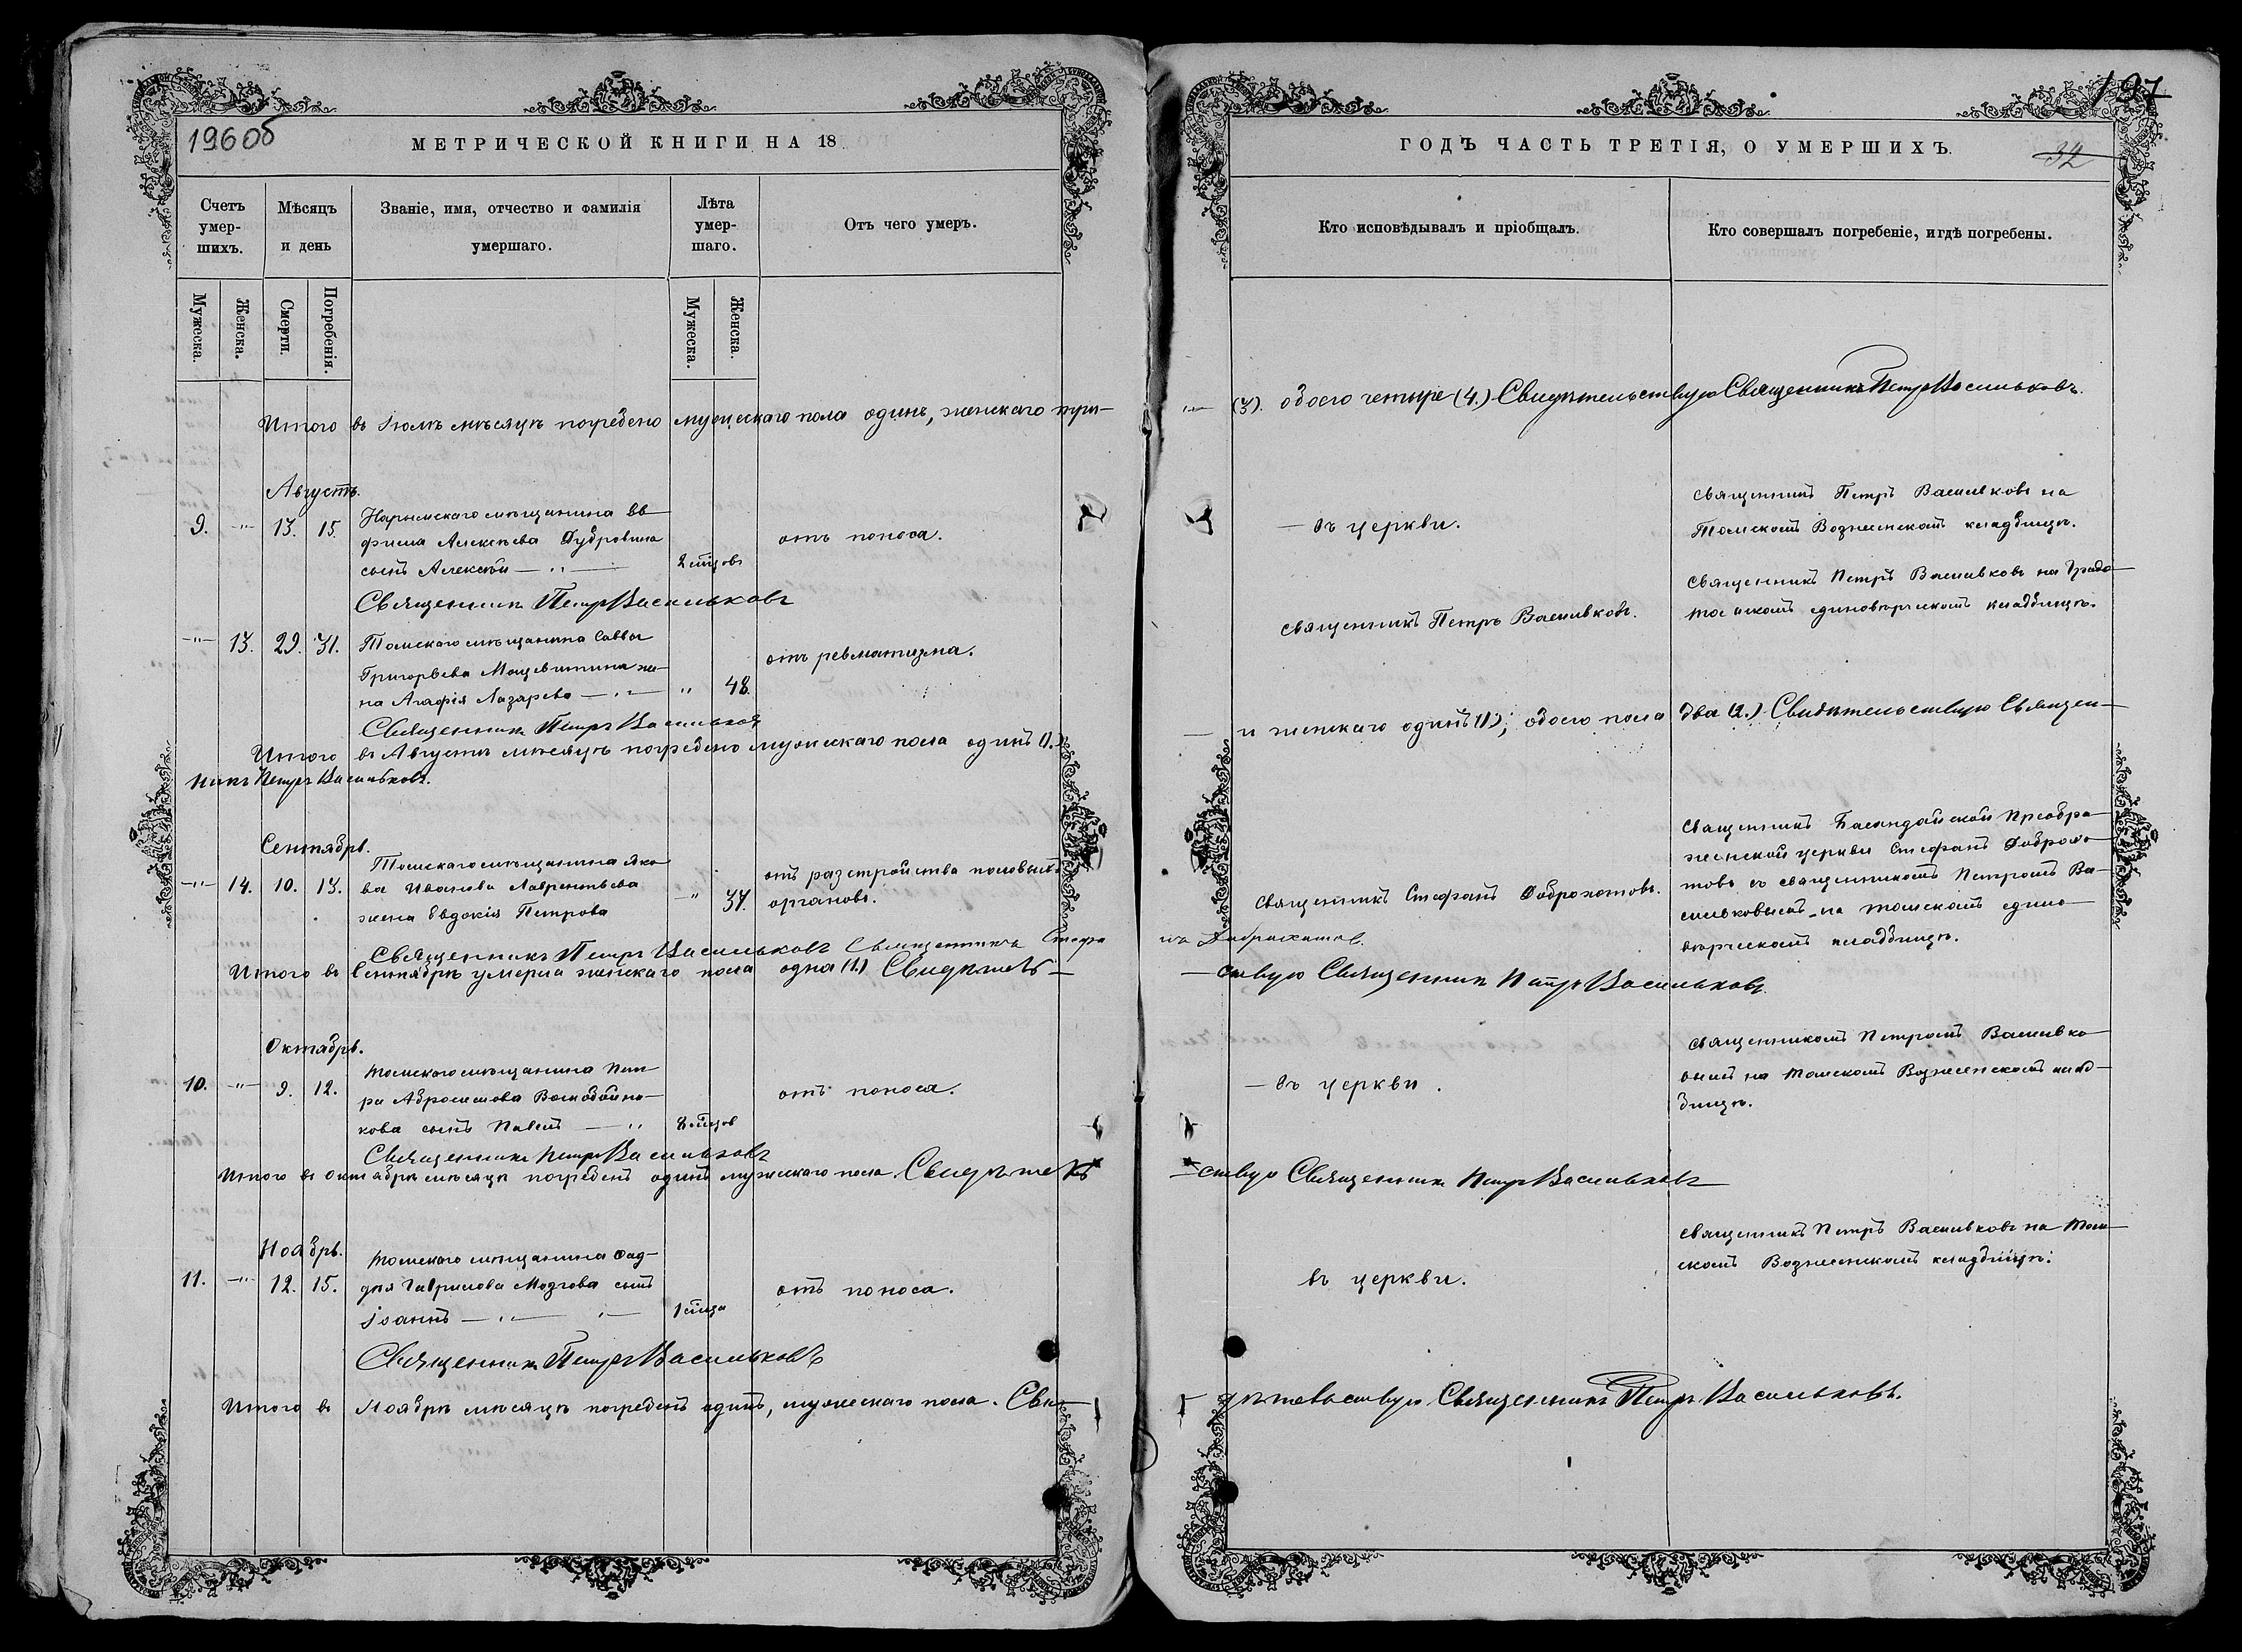 196об
МЕТРИЧЕСКОЙ КНИГИ НА 18
Счетъ умершихъ.
Мѣсяцъ и день
Званіе, имя, отчество и фамилія умершаго.
Лѣта умершаго.
Отъ чего умеръ.
Мужеска.
Женска.
Смерти.
Погребенія.
Мужеска.
Женска.
Итого въ Іюлѣ мѣсяцѣ погребено мужескаго пола одинъ, женскаго три—
Августъ.
9. —"— 13. 15.
Нарымскаго мѣщанина Ев
фима Алексѣева Дубровина
сынъ Алексѣй — " —
2 мѣсцовъ
отъ поноса.
Священникъ Петръ Васильковъ
—"— 13. 29. 31.
Томскаго мѣщанина Саввы
Григорьева Мощевитина же—
на Агафія Лазарева — " —
" 48.
отъ ревматизма.
Священникъ Петръ Васильков
Итого въ Августѣ мѣсяцѣ погребено мужескаго пола одинъ (1.)
никъ Петръ Васильковъ.
Сентябрь.
—"— 14. 10. 13.
Томскаго мѣщанина Яко
ва Иванова Лаврентьева
жена Евдокія Петрова
—" 37.
отъ разстройства половыхъ
органовъ.
Священникъ Петръ Васильковъ Священникъ Стефа
Итого въ Сентябрѣ умерла женскаго пола одна (1.) Свидѣтель—
Октябрь.
10. —"— 9. 12.
Томскаго мѣщанина Пет
ра Абросимова
кова сынъ Павелъ — "
8 мѣсцов
отъ поноса.
Священникъ Петръ Васильковъ
Итого въ октябрѣ мѣсяцѣ погребенъ одинъ мужскаго пола. Свидѣтель
Ноябрь.
11. —"— 12. 15.
Томскаго мѣщанина Фад—
дея Гаврилова Мозгова сынъ
Іоаннъ — " — "
1 мѣсца
отъ поноса.
Священникъ Петръ Васильковъ
Итого въ Ноябрѣ мѣсяцѣ погребенъ одинъ, мужескаго пола. Сви—
197
ГОДЪ ЧАСТЬ ТРЕТІЯ, О УМЕРШИХЪ.
32
Кто исповѣдывалъ и пріобщалъ.
Кто совершалъ погребеніе, и гдѣ погребены.
"— (3). обоего четыре (4.) Свидѣтельствую Священникъ Петръ Васильковъ.
— въ церкви.
Священникъ Петръ Васильковъ на
Томскомъ Вознесенскомъ кладбищѣ.
Священникъ Петръ Васильковъ.
Священникъ Петръ Васильковъ на Градо—
томскомъ единовѣрческомъ кладбищѣ.
— и женскаго одинъ (1); обоего пола два (2.) Свидѣтельствую Священ—
Священникъ Стефанъ Доброхотовъ.
Священникъ Басандайской Преобра—
женской церкви Стефанъ Доброхо—
товъ съ священникомъ Петромъ Ва—
сильковымъ на томскомъ едино—
вѣрческомъ кладбищѣ.
нъ Доброхотов.
—ствую Священник Петръ Васильковъ.
— въ церкви.
Священникомъ Петромъ Василько—
вымъ на Томскомъ Вознесенскомъ клад—
бищѣ.
—ствую Священникъ Петръ Васильковъ
въ церкви.
Священникъ Петръ Васильковъ на Том—
скомъ Вознесенскомъ кладбищѣ.
дѣтельствую Священникъ Петръ Васильковъ.